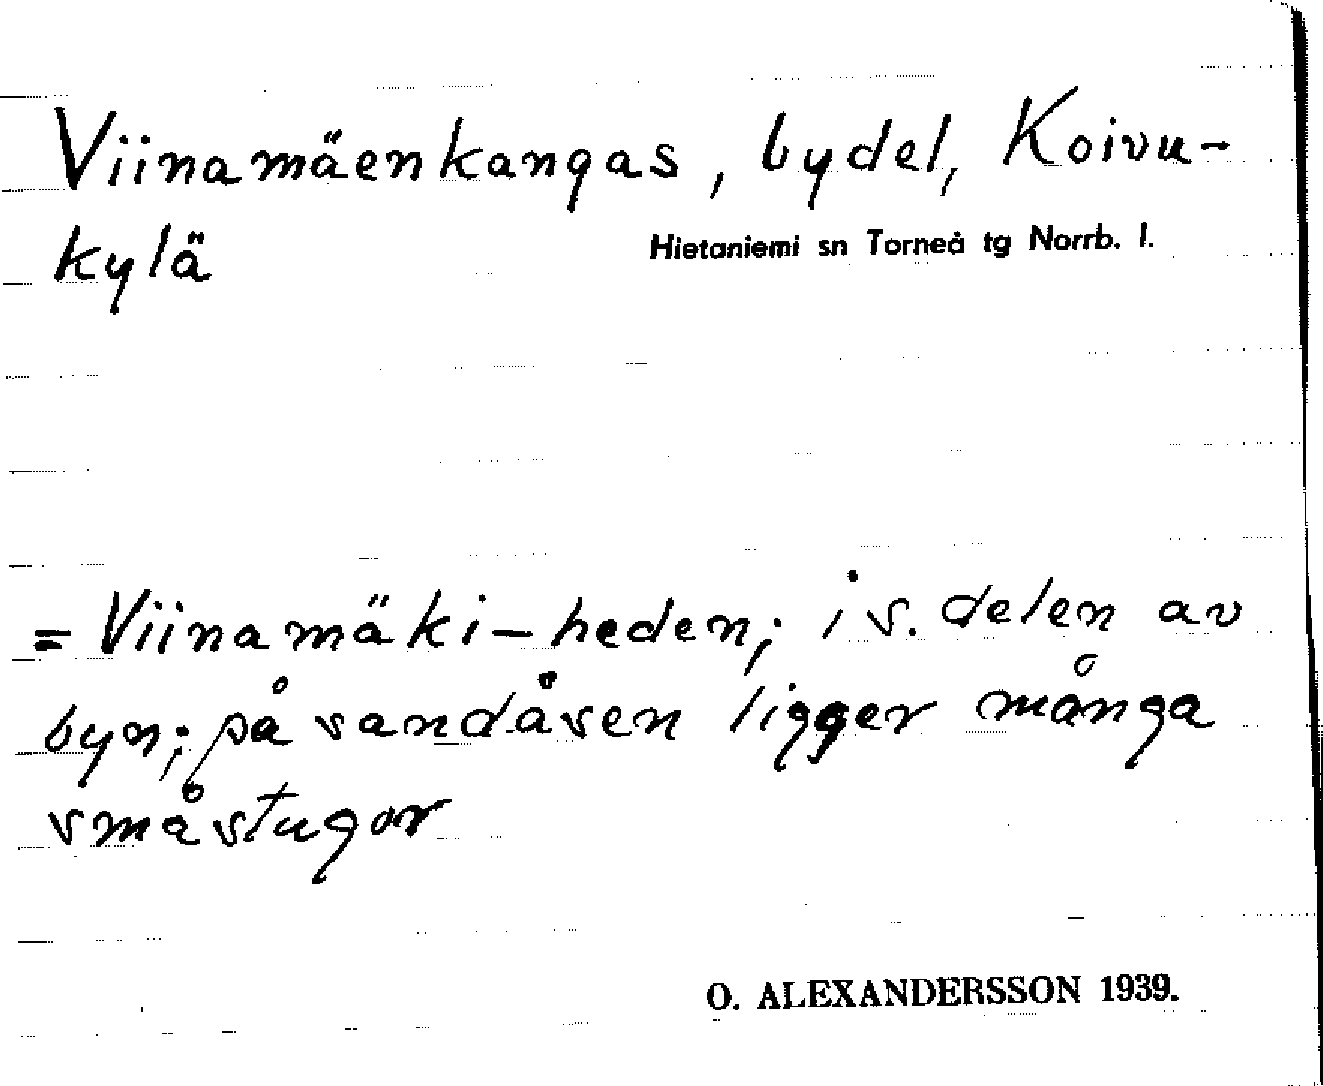 Viinamäenkangas, bydel, Koivu-
kylä
Hietaniemi sn Torneå tg Norrb. l.
= Viinamäki-heden; i s. delen av
byn; på sandåsen ligger många
småstugor
O. ALEXANDERSSON 1939.